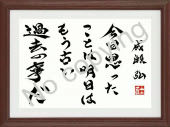 今日思った
ことは明日は
もう古い
過去の
No copying